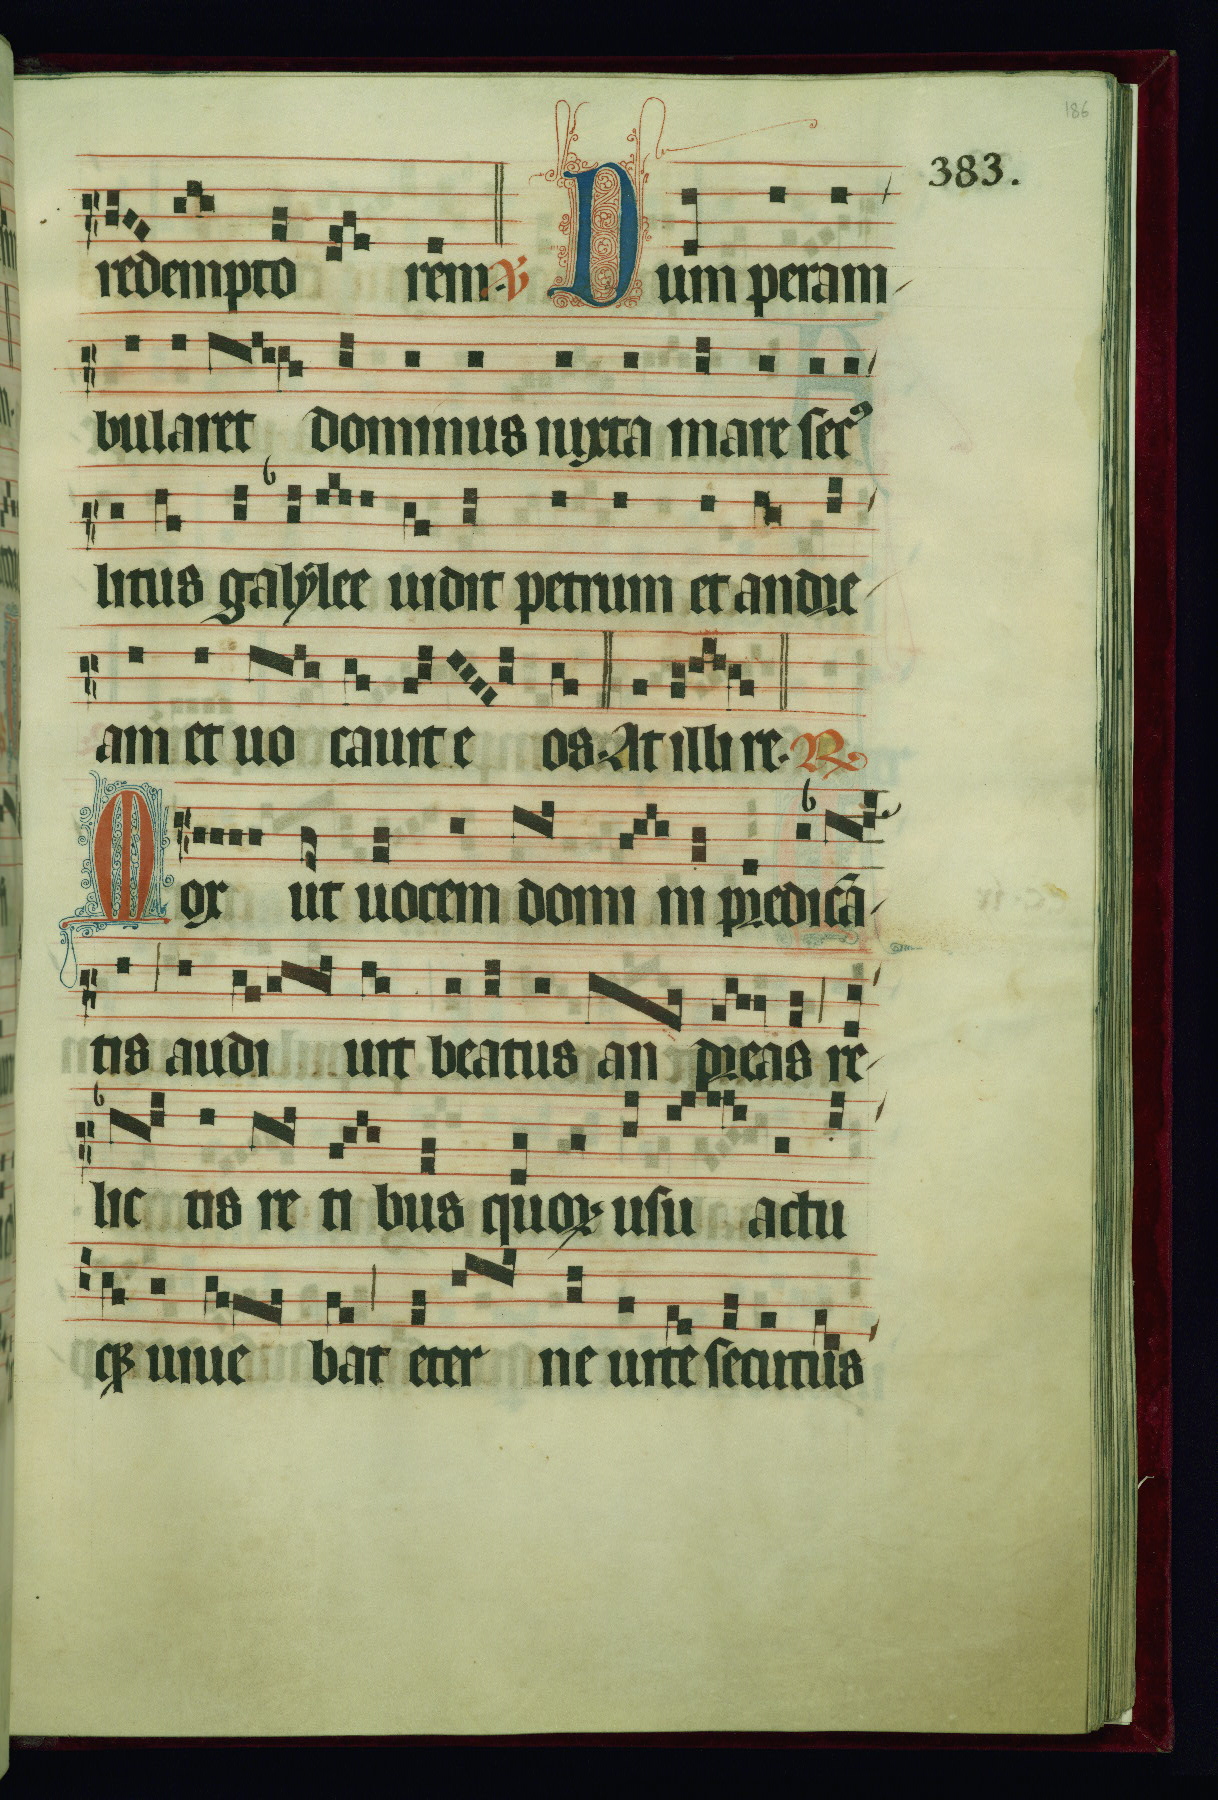 186
383.
redempto rem. V Dum peram
bularet dominus iuxta mare secꝰ
litus galylee uidit petrum et andre
am et uo cauit e os. At illi re. R
Mox ut uocem domi ni predicā
tis audi uit beatus an dreas re
lic tis re ti bus quoꝝ usu actu
qꝫ uiue bat eter ne uite secutus